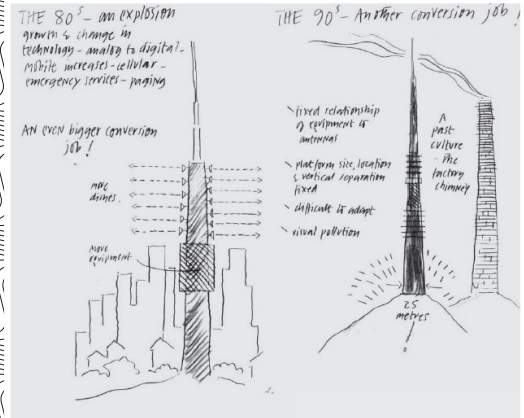 THE 80s - an explosion
growth & change in
technology - analog to digital -
mobile increases - cellular -
emergency services - paging
AN EVEN BIGGER CONVERSION
JOB!
more
dishes.
more
equipment
THE 90s - Another conversion job!
fixed relationship
of equipment to
antennas
platform site, location
& vertical separation
fixed
difficult to adapt
visual pollution
A
past
culture
- the
factory
chimney
25
metres